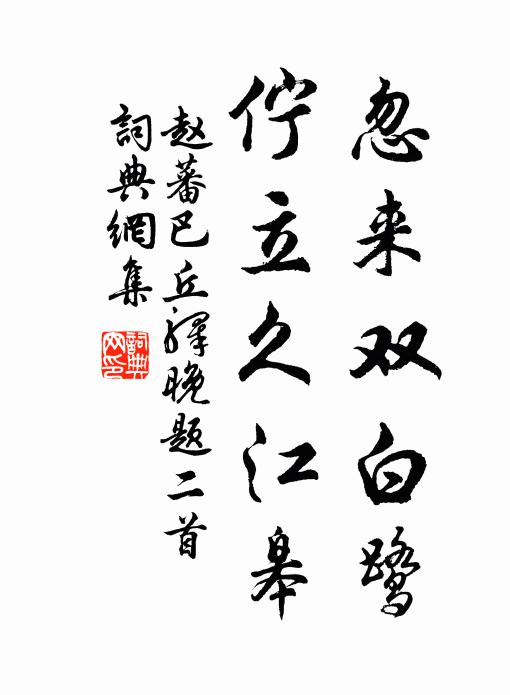 忽来双白鹭
伫立久江皋
赵蕃巴丘驿晚题二首
詞典網集
詞典網印